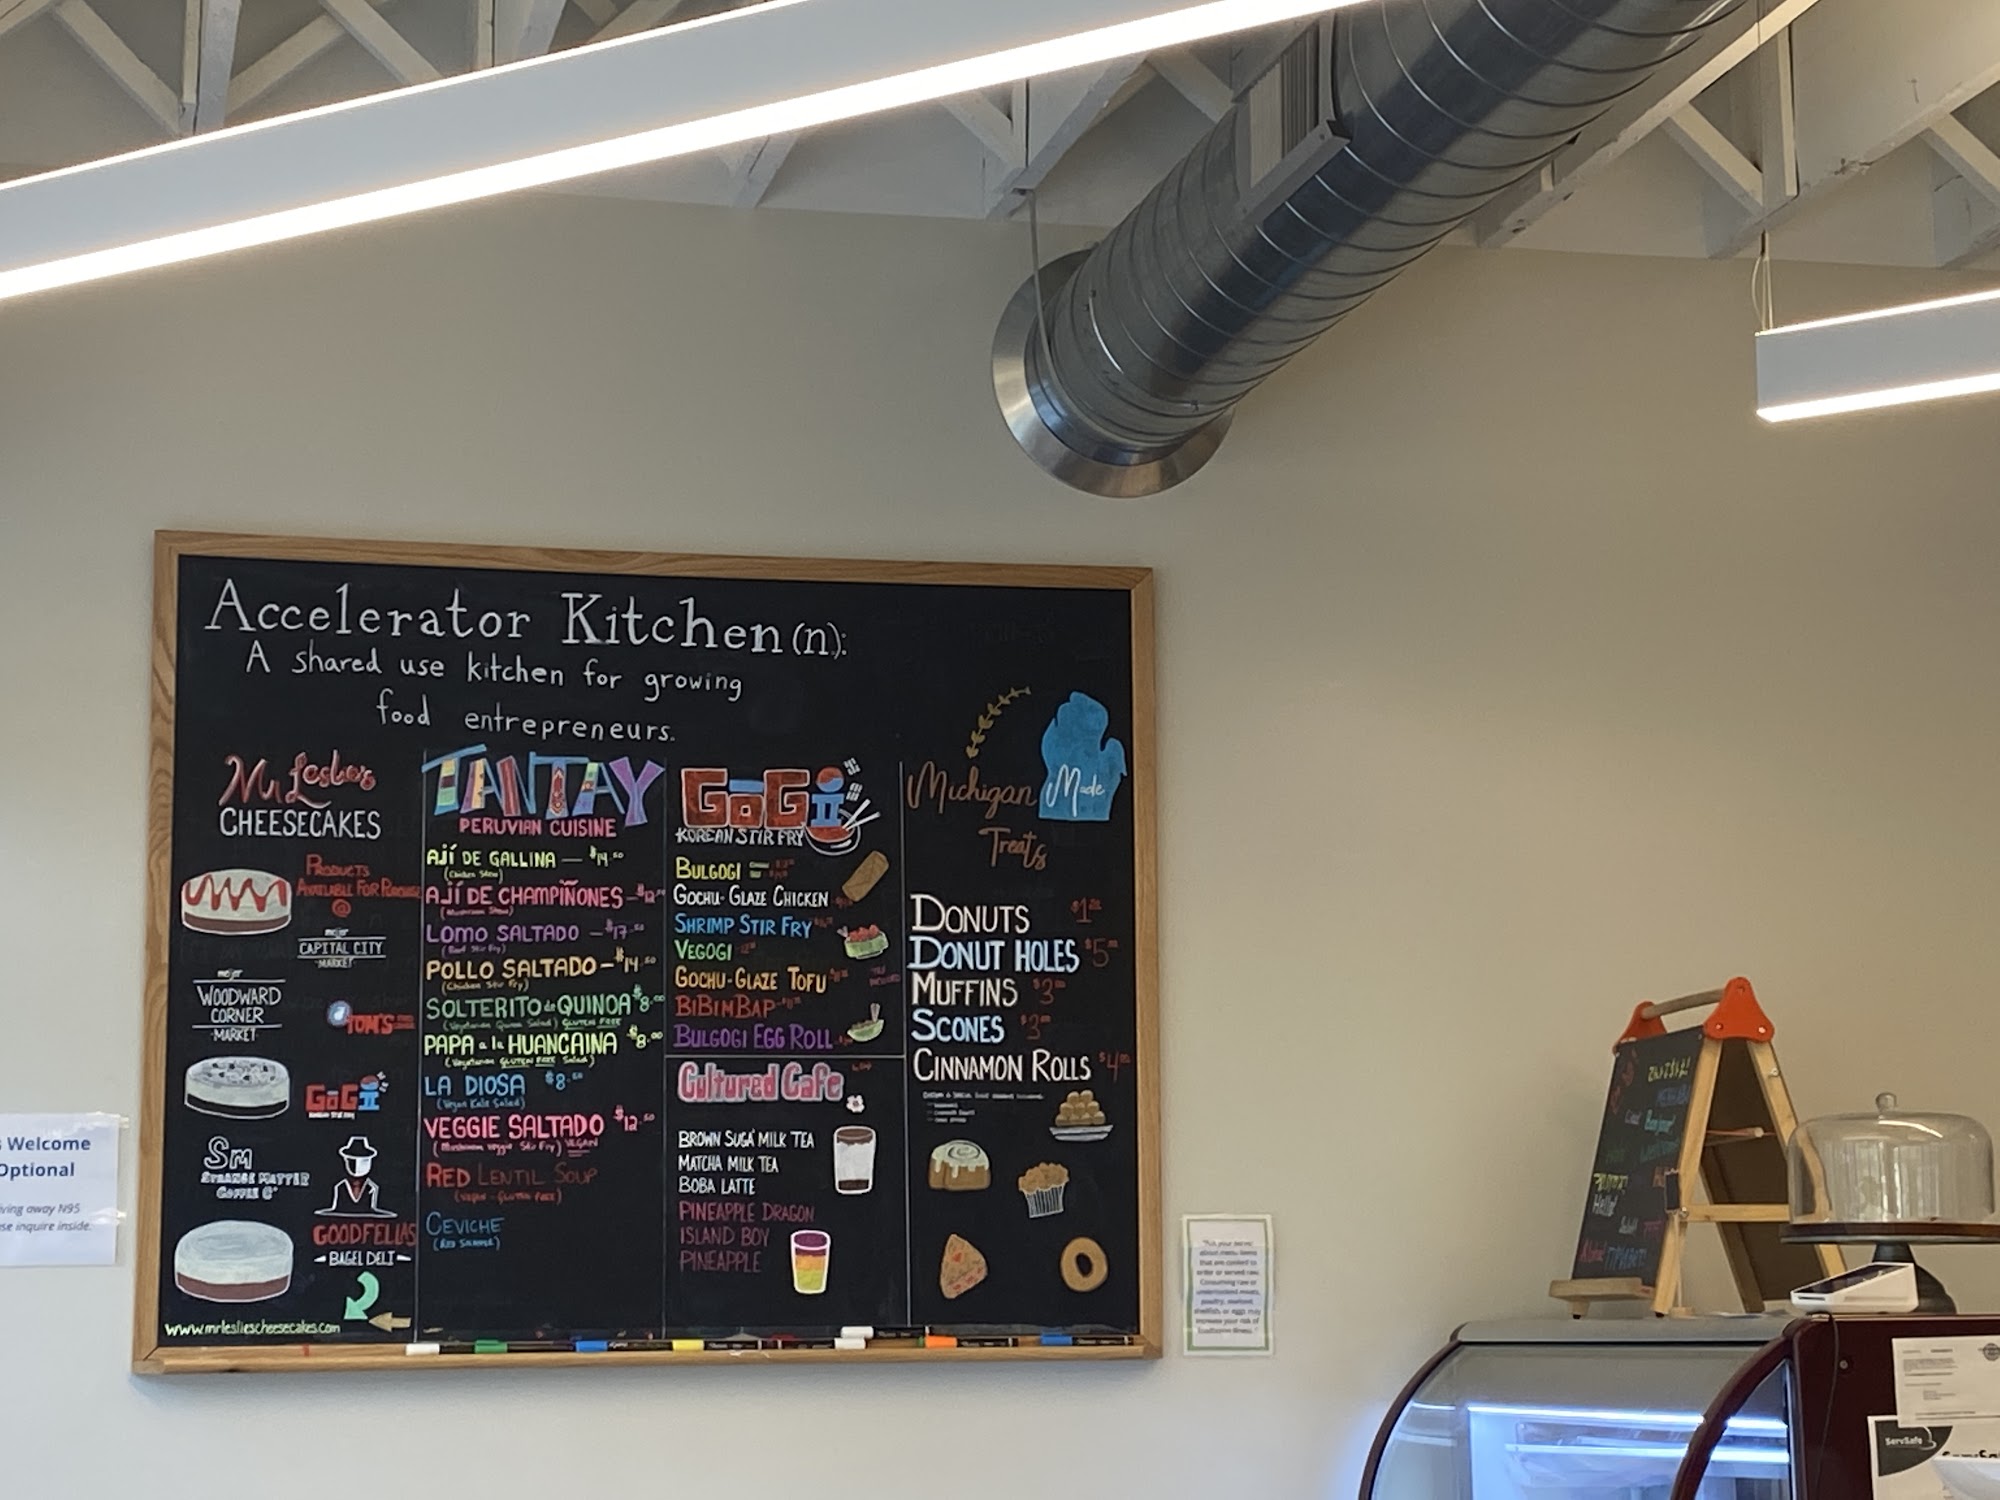 Accelerator Kitchen(n):
A shared use kitchen for growing
food entrepreneurs.
Mr Leslie's
CHEESECAKES
PRODUCTS
AVAILABLE FOR PURCHASE
@
meijer
CAPITAL CITY
MARKET
meijer
WOODWARD
CORNER
MARKET
TOM'S
GOGI
Sm
STRANGE MATTER
COFFEE Cº
GOODFELLAS
BAGEL DELI
www.mrlesliescheesecakes.com
TANTAY
PERUVIAN CUISINE
AJÍ DE GALLINA — $14.50
(Chicken Stew)
AJÍ DE CHAMPIÑONES — $12.50
(Mushroom Stew)
LOMO SALTADO — $17.50
(Beef Stir Fry)
POLLO SALTADO — $14.50
(Chicken Stir Fry)
SOLTERITO de QUINOA $8.00
(Vegetarian Quinoa Salad) GLUTEN FREE
PAPA a la HUANCAINA $8.00
(Vegetarian GLUTEN FREE Salad)
LA DIOSA $8.50
(Vegan Kale Salad)
VEGGIE SALTADO $12.50
(Mushroom Veggie Stir Fry) VEGAN
RED LENTIL SOUP
(VEGAN - GLUTEN FREE)
CEVICHE
(RED SNAPPER)
GOGI
KOREAN STIR FRY
BULGOGI
GOCHU-GLAZE CHICKEN
SHRIMP STIR FRY
VEGOGI
GOCHU-GLAZE TOFU
BIBIMBAP
BULGOGI EGG ROLL
Cultured Cafe
BROWN SUGA' MILK TEA
MATCHA MILK TEA
BOBA LATTE
PINEAPPLE DRAGON
ISLAND BOY
PINEAPPLE
Michigan Made
Treats
DONUTS
DONUT HOLES $5
MUFFINS $3
SCONES $3
CINNAMON ROLLS $4
Welcome
Optional
iving away N95
se inquire inside.
Ask your server
about menu items
that are cooked to
order or served raw.
Consuming raw or
undercooked meats,
poultry, seafood,
shellfish, or eggs may
increase your risk of
foodborne illness.
Bonjour!
Hello!
Aloha!
ServSafe